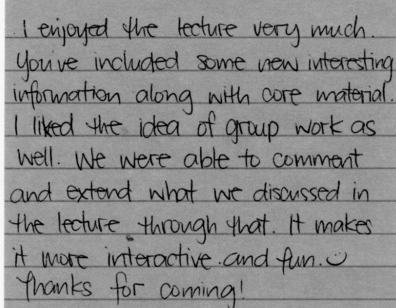 I enjoyed the lecture very much.
You've included some new interesting
information along with core material.
I liked the idea of group work as
well. We were able to comment
and extend what we discussed in
the lecture through that. It makes
it more interactive and fun. ü
Thanks for coming!